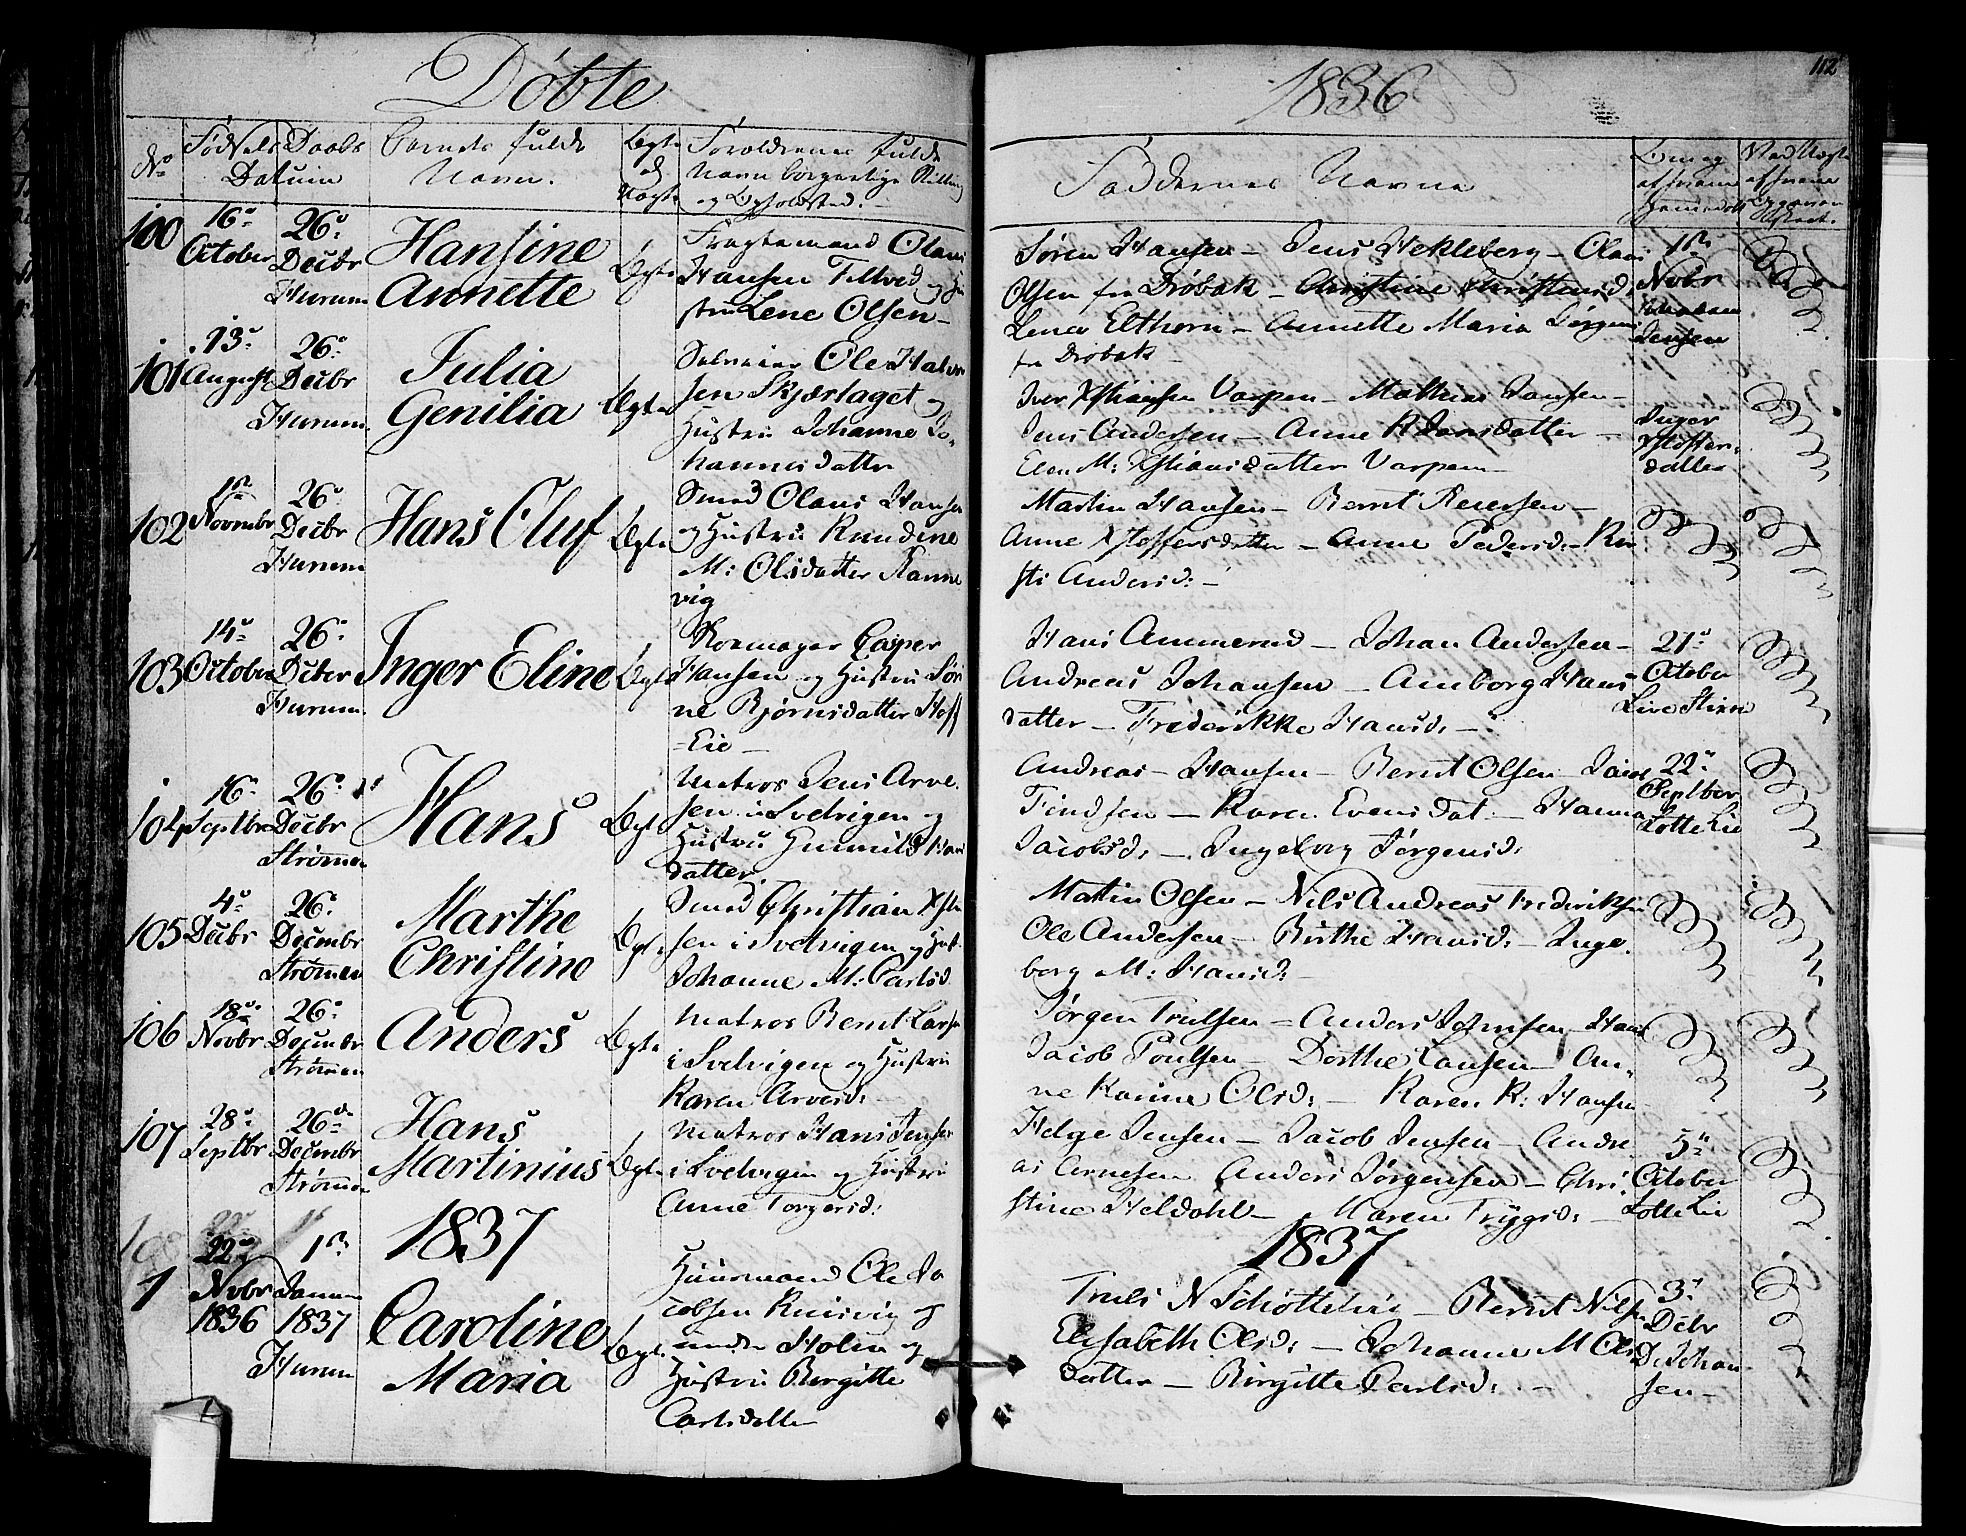 Døbte
1836
112
No
Fødsels Daabs
Datum
Barnets fulde
Navn.
Ægte
Forældrenes fulde
Navn borgerlige Stilling
og Opholdsted.
Faddernes Navne
100
16de October
26de Decbr Hurum
Hansine Annette
Ægte
Olaus
Hansen Tilltved og Hu
stru Lene Olsen
Søren Hansen - Jens Hekleberg - Olaus
Olsen fra Drøbak - Christine Christensd:
Lena Elthorn - Annette Maria Jørgens
fra Drøbak
1ste Novbr
Jensen
101
13de August
26de Decbr Hurum
Julia Genilia
Ægte
Ole Halvor
sen Skjærlaget og
Hustru Johanne Jo-
hannesdatter
Iver Xstiansen Varpen - Mathias Jansen -
Jens Andersen - Anne R Jansdatter -
Elen M: Xstiansdatter Varpen
Inger
Xstoffers
datter
102
1ste Novmbr
26de Decbr Hurum
Hans Oluf
Ægte
Smed Olaus Hansen
og Hustru Rundine
M: Olsdatter Ranne
vig
Martin Hansen - Bernt Reiersen -
Anne Xstoffersdatter - Anne Pedersd: - Kir
sti Andersd: -
103
14de October
26de Decber Hurum
Inger Eline
Ægte
Casper
Hansen og Hustru Sør
ne Bjørnsdatter Hoff
-Eie-
Hans Ammerud - Johan Andersen -
Andreas Johansen - Amborg Hans
datter - Frederikke Hansd: -
21de
October
104
16de Septbr
26de Decbr Strømmen
Hans
Ægte
Matros Jens Arve
sen i Svelvigen og
Hustru Gunnild Han
datter
Andreas - Hansen - Bernt Olsen - Jacob
Findsen - Karen Evensdat - Hanna
Jacobsd: - Ingeborg Jørgensd:
22de
Septbr
Lotte Lie
105
4de Decbr
26de Decembr Strømmen
Marthe Christine
Ægte
Smed Christian Xstn
sen i Svelvigen og Hust
Johanne M: Carlsd
Martin Olsen - Nils Andreas Frederiksen
Ole Andersen - Birthe Hansd: - Inge
borg M: Hansd: -
106
18de Novbr
26de Decmbr Strømmen
Anders
Ægte
Matros Bernt Larsen
i Svelvigen og Hustru
Karen Arvesd:
Jørgen Trulsen - Anders Johnsen - Hans
Jacob Poulsen - Dorthe Hansen - An-
ne Karine Olsd: - Karen K: Hansen
107
28de Septbr
26de Decmbr Strømmen
Hans Martinius
Ægte
Matros Hans Jensen
i Svelvigen og Hustru
Anne Torgersd:
Helge Jensen - Jacob Jensen - Andre
as Arnesen Anders Jørgensen - Chri
stine Heldahl - Maren Trygsd: -
5te
October
Lotte Lie
108
1837
1837
1
22de Novbr 1836
1ste Januar 1837 Hurum
Caroline Maria
Ægte
Huusmand Ole Ja
cobsen og
under Holen og
Hustru Birgitte
Carlsdatter
Truls N Schøttelvig - Bernt Nilsen
Elisabeth Olsd: - Johanne M Ols
datter - Birgitte Carlsd: -
3de
Decbr
D: Johan
sen -